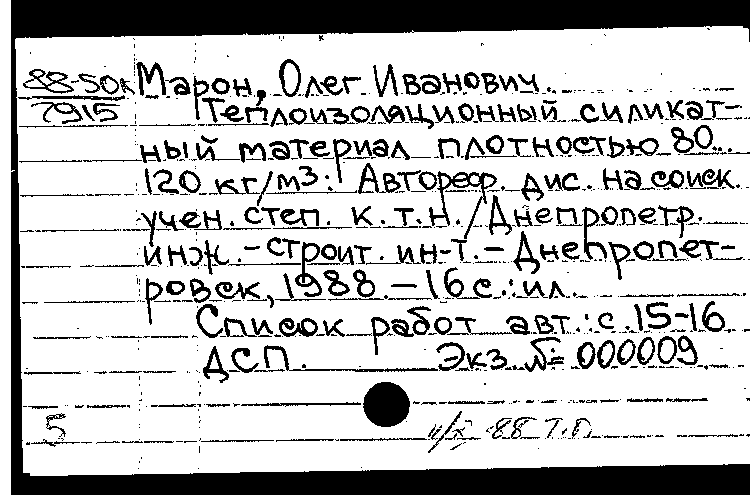 88-50к Марон, Олег Иванович.
7915 Теплоизоляционный силикат-
ный материал плотностью 80...
120 кг/м3: Автореф. дис. на соиск.
учен. степ. к.т.н. / Днепропетр.
инж.-строит. ин-т. - Днепропет-
ровск, 1988. - 16 с.: ил.
Список работ авт.: с. 15-16
ДСП. Экз. № 000009
5
88